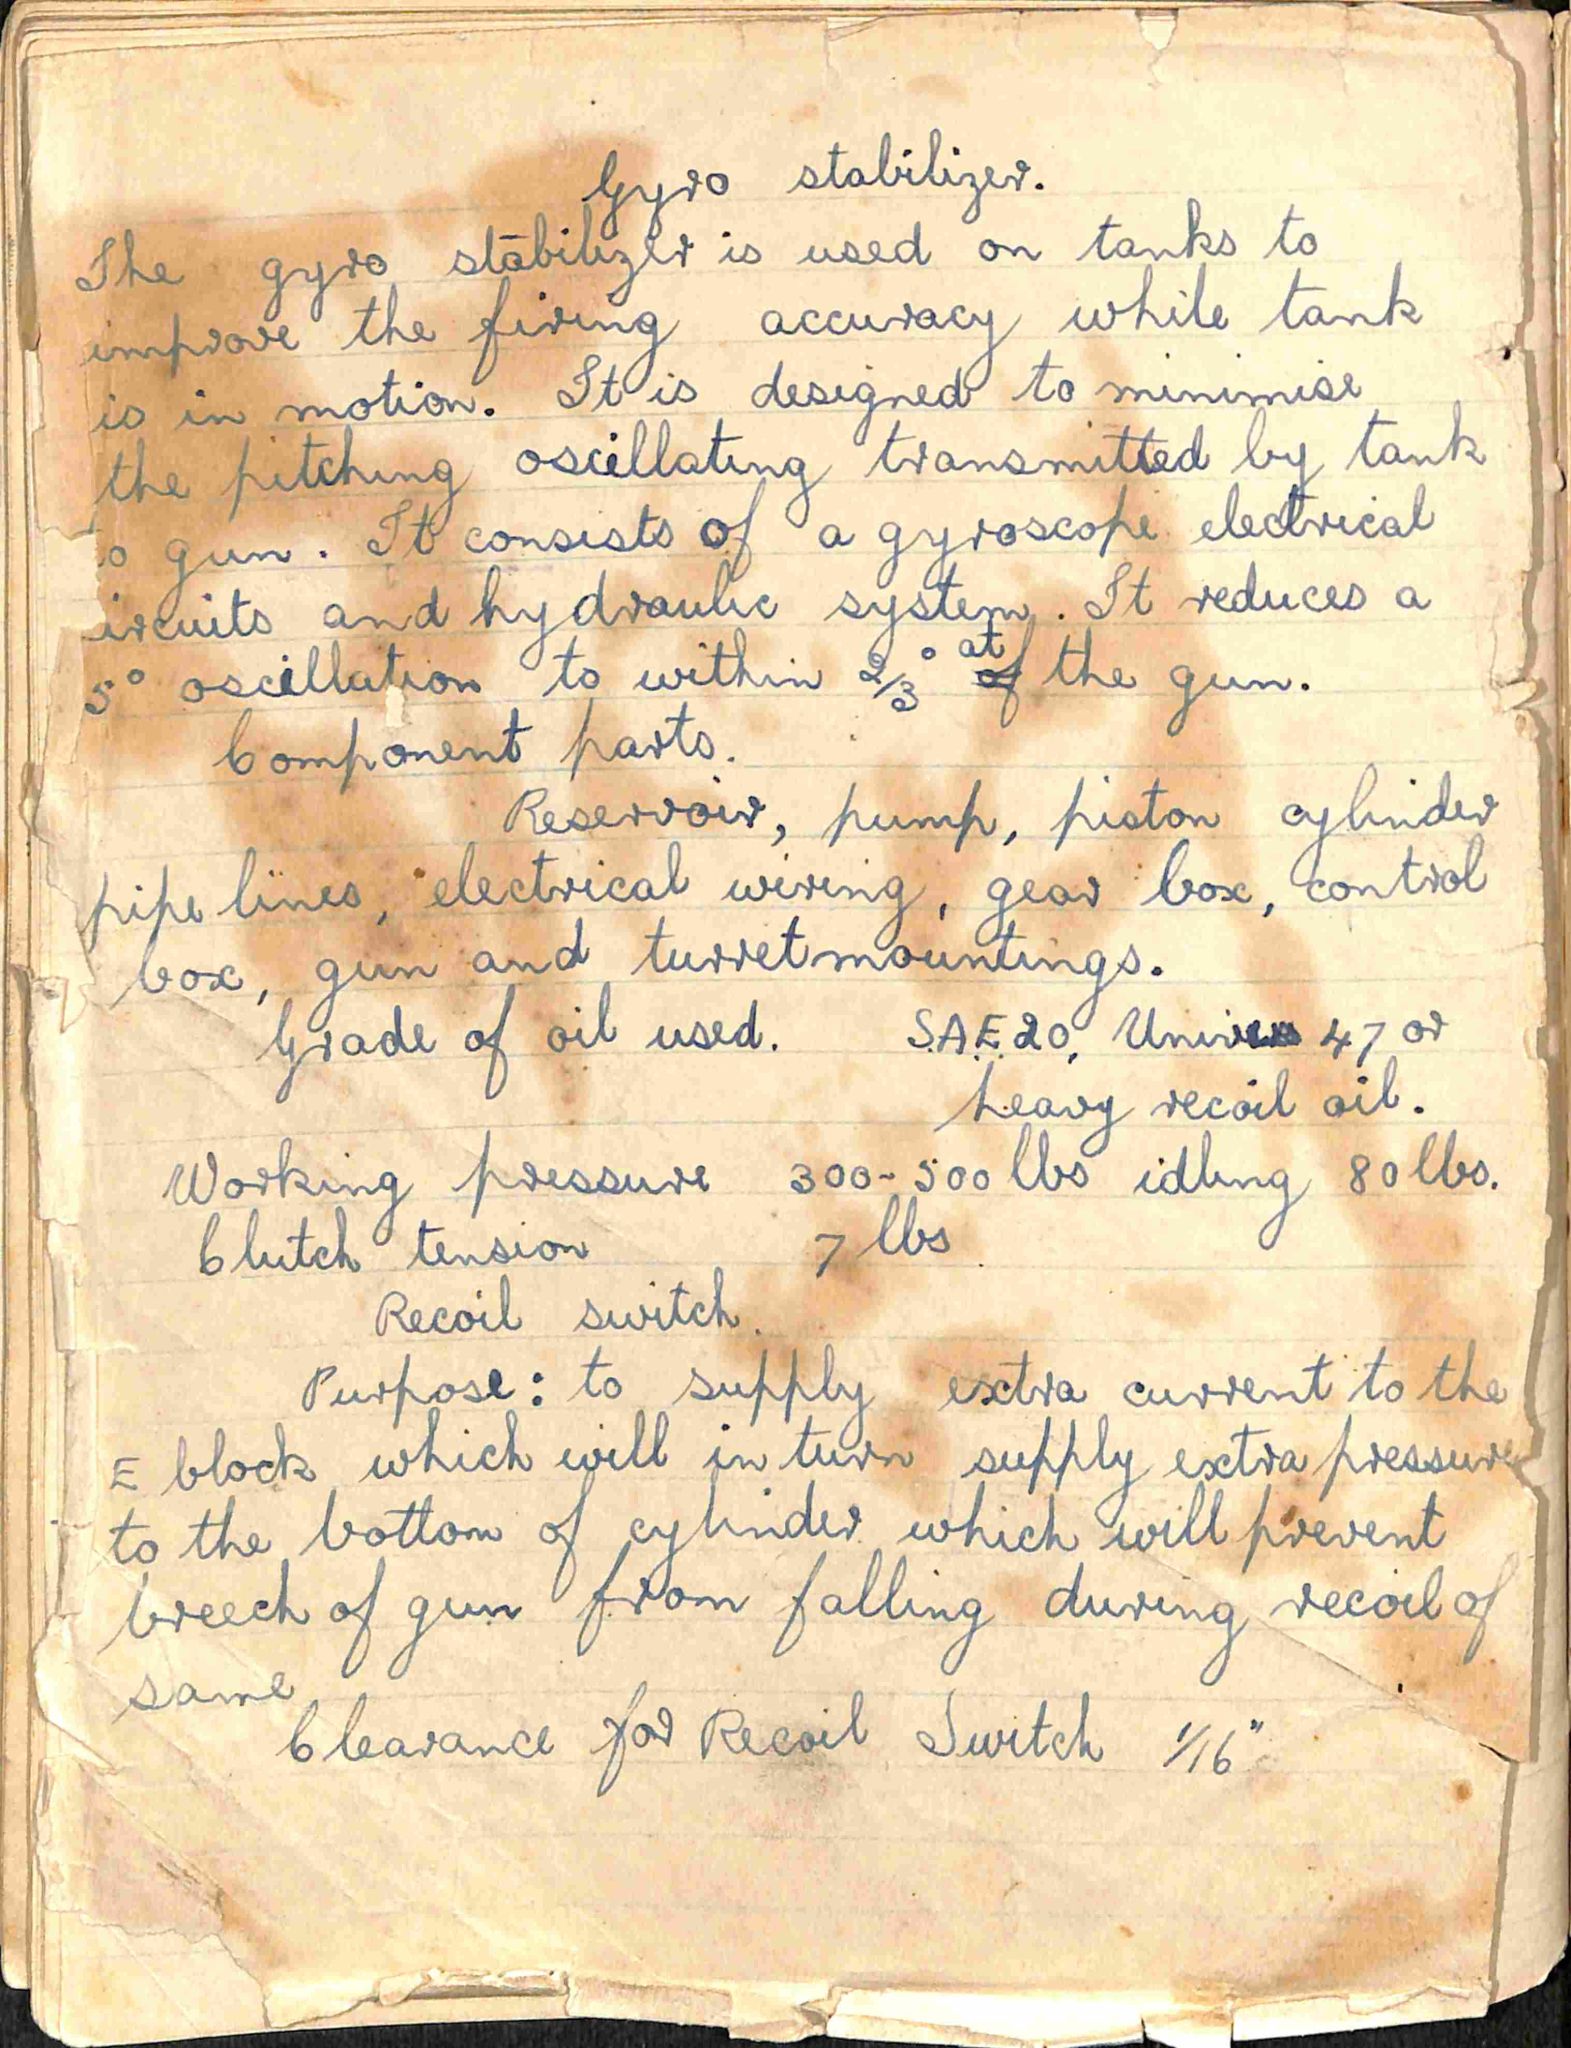 Gyro stabilizer.
The gyro stabilizer is used on tanks to
improve the firing accuracy while tank
is in motion. It is designed to minimise
the pitching oscillating transmitted by tank
o gun. It consists of a gyroscope electrical
ircuits and hydraulic system. It reduces a
5° oscillation to within 2/3° at of the gun.
Component parts.
Reservoir, pump, piston cylinder
pipe lines, electrical wiring, gear box, control
box, gun and turret mountings.
Grade of oil used. S.A.E. 20, 47 or
heavy recoil oil.
Working pressure 300-500 lbs idling 80 lbs.
Clutch tension 7 lbs
Recoil switch.
Purpose: to supply extra current to the
E block which will in turn supply extra pressure
to the bottom of cylinder which will prevent
breech of gun from falling during recoil of
same
Clearance for Recoil Switch 1/16"